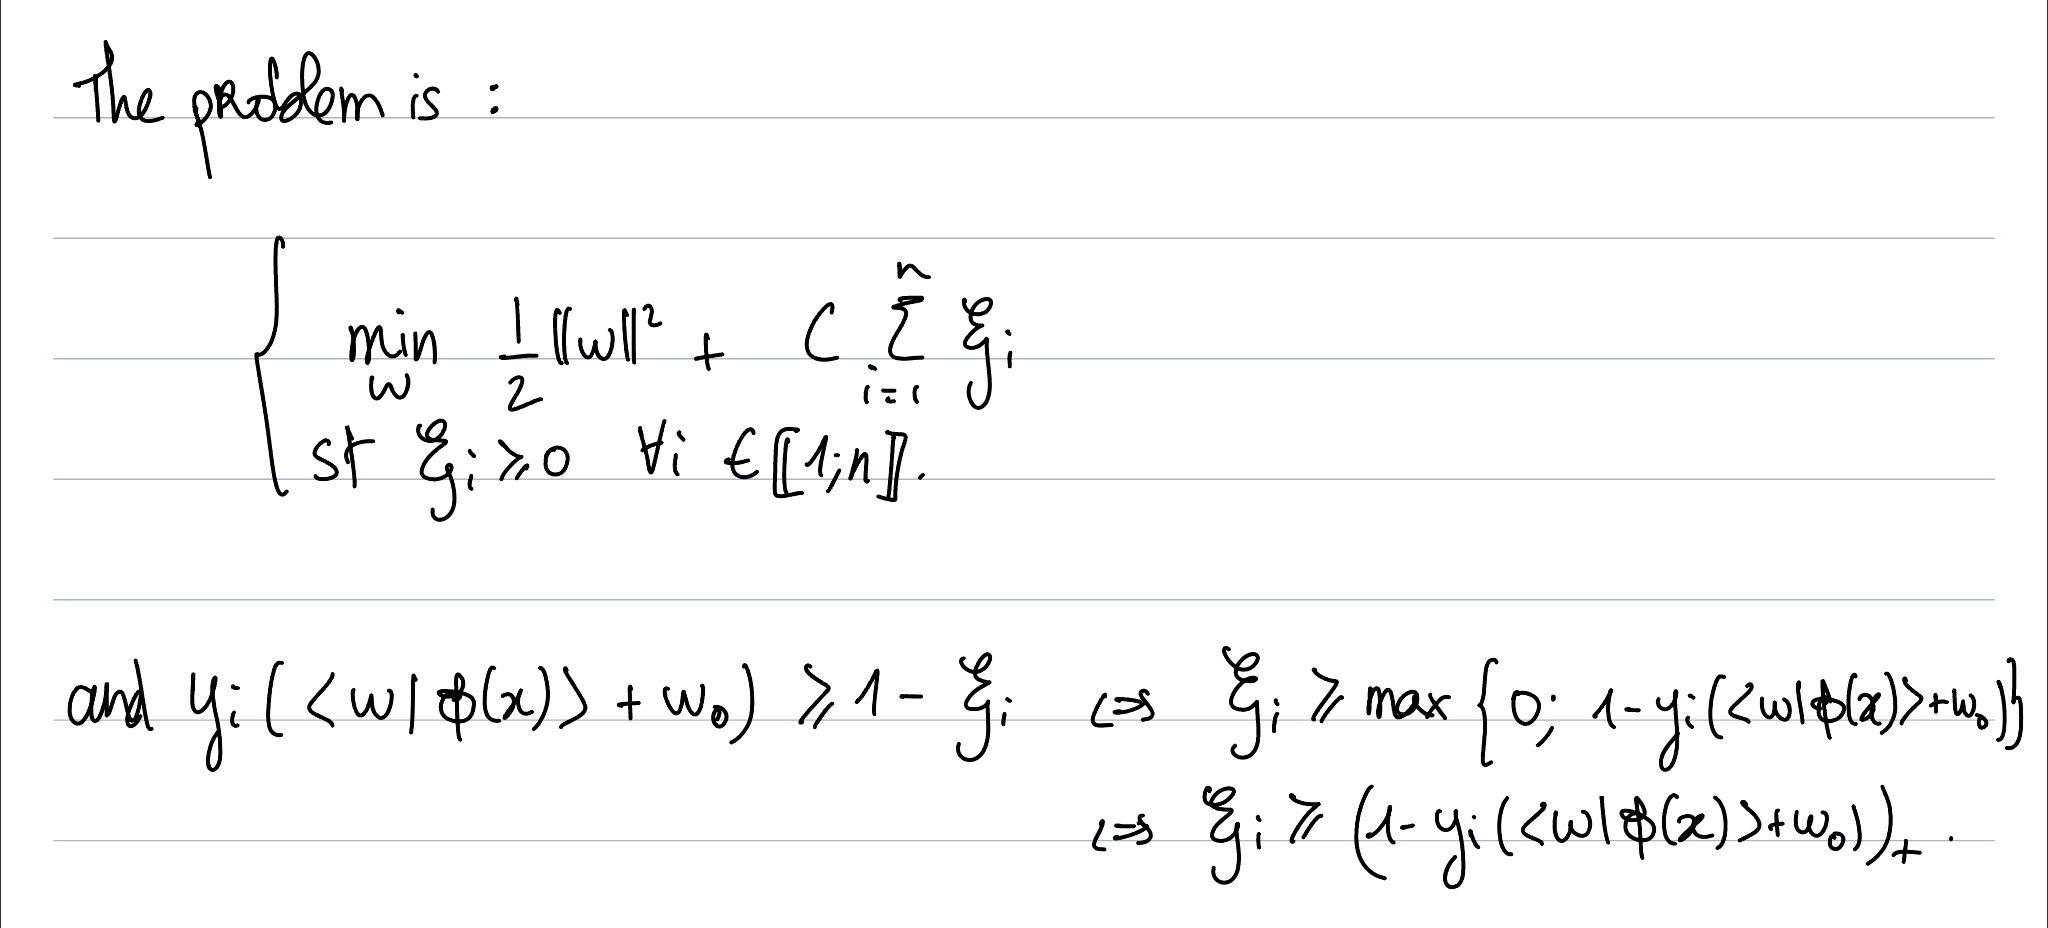 The problem is :
min_w 1/2 ||w||² + C Σ_{i=1}^{n} ξ_i
st ξ_i ⩾ 0 ∀i ∈ ⟦1;n⟧.
and y_i(<w|ϕ(x)> + w_0) ⩾ 1 - ξ_i <=> ξ_i ⩾ max {0; 1-y_i(<w|ϕ(x)>+w_0)}
<=> ξ_i ⩾ (1-y_i(<w|ϕ(x)>+w_0))_+ .